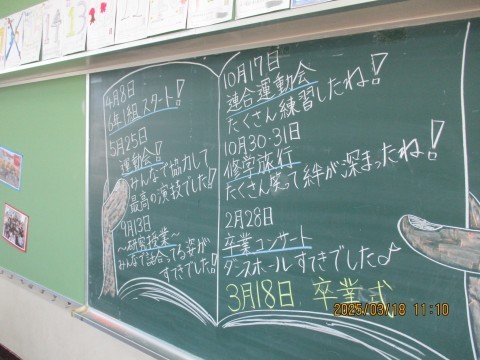 4月8日
6年1組スタート!
5月25日
運動会!
みんなで協力して
最高の演技でした!
9月13日
～研究授業～
みんなで話合ってる姿が
すてきでした!
10月17日
連合運動会
たくさん練習したね!
10月30・31日
修学旅行
たくさん笑って絆が深まったね!
2月28日
卒業コンサート
ダンスホールすてきでした♪
3月18日 卒業式
2025/03/18 11:10